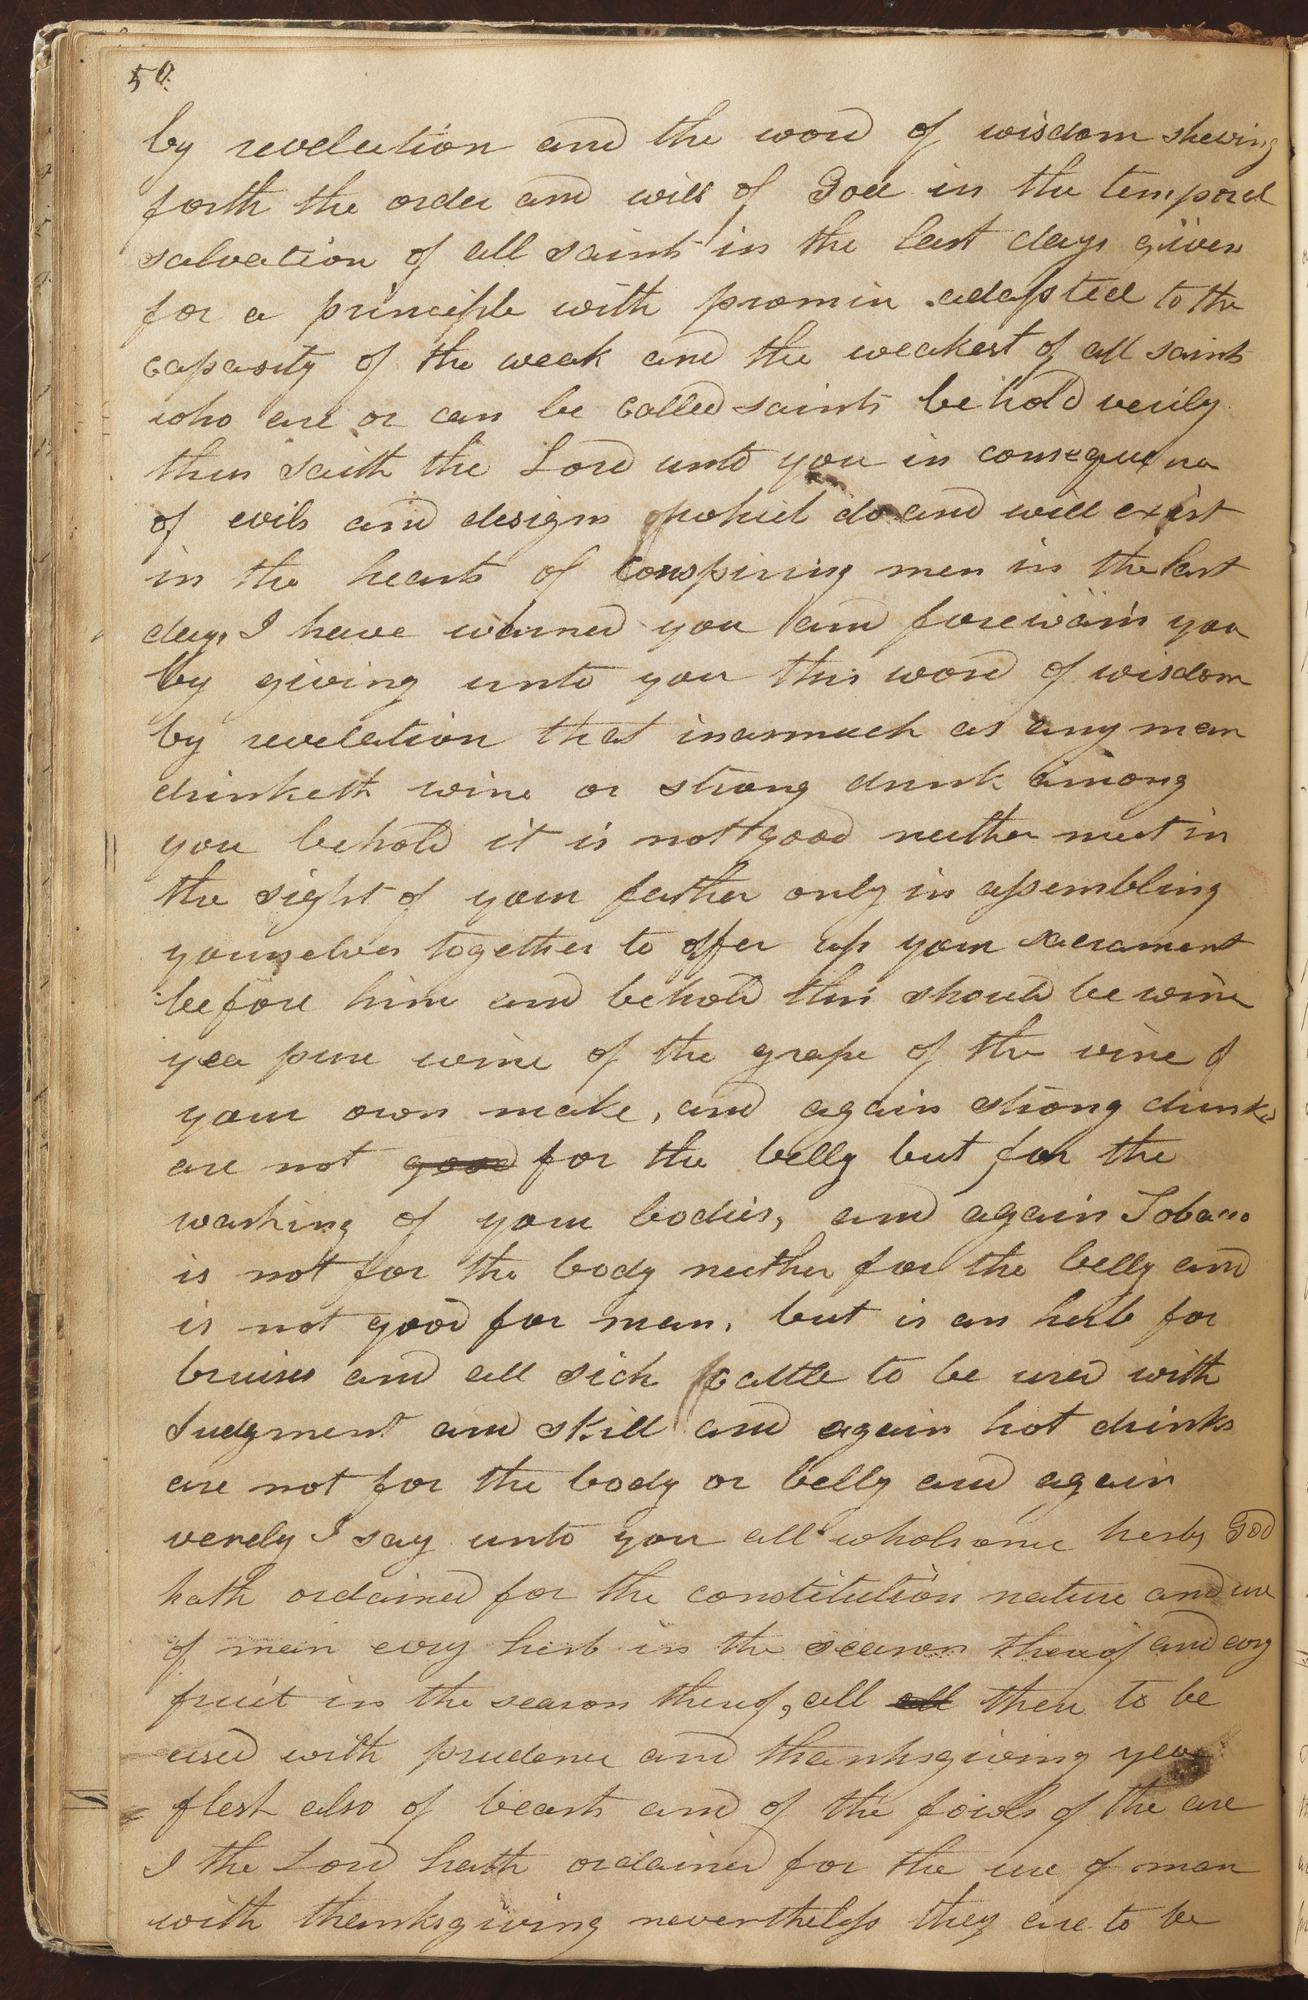 50.
by revelation and the word of wisdom shewing
forth the order and will of God in the temporal
salvation of all saints in the last days given
for a principle with promin adapted to the
capasity of the weak and the weakest of all saints
who are or can be called saints behold verily
thus saith the Lord unto you in consequence
of evils and designs which do and will exist
in the hearts of conspiring men in the last
days I have warned you and forewarn you
by giving unto you this word of wisdom
by revelation that inasmuch as any man
drinketh wine or strong drink among
you behold it is not good neither meet in
the sight of your father only in assembling
yourselves together to offer up your sacrament
before him and behold this should be wine
yea pure wine of the grape of the vine of
your own make, and again strong drinks
are not good for the belly but for the
washing of your bodies, and again Tobacco
is not for the body neither for the belly and
is not good for man, but is an herb for
bruises and all sick cattle to be used with
Judgment and skill and again hot drinks
are not for the body or belly and again
verely I say unto you all wholsome herbs God
hath ordained for the constitution nature and use
of man evry herb in the season thereof and evry
fruit in the season thereof, all all these to be
used with prudence and thanksgiving yea
flesh also of beasts and of the fowls of the are
I the Lord hath ordained for the use of man
with thanksgiving nevertheless they are to be